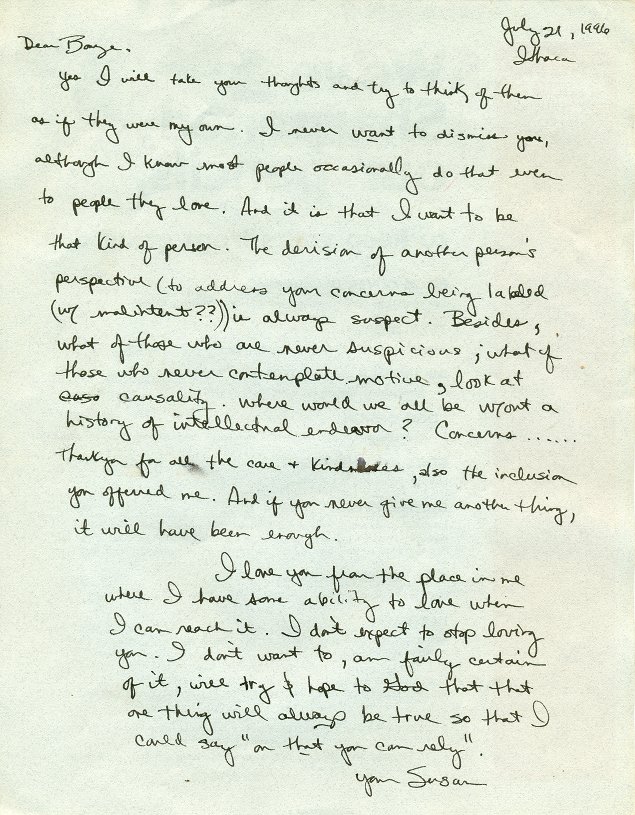 July 21, 1996
Ithaca
Dear
Yes I will take your thoughts and try to think of them
as if they were my own. I never want to dismiss you,
although I know most people occasionally do that even
to people they love. And it is that I want to be
that kind of person. The derision of another person's
perspective (to address your concerns being labeled
(w/ malintent??)) is always suspect. Besides,
what of those who are never suspicious; what of
those who never contemplate motive, look at
causality. Where would we all be w/out a
history of intellectual endeavor? Concerns ......
Thankyou for all the care + kindnesses, also the inclusion
you offered me. And if you never give me another thing,
it will have been enough.
I love you from the place in me
where I have some ability to love when
I can reach it. I don't expect to stop loving
you. I don't want to, am fairly certain
of it, will try & hope to that that
one thing will always be true so that I
could say "on that you can rely".
your Susan